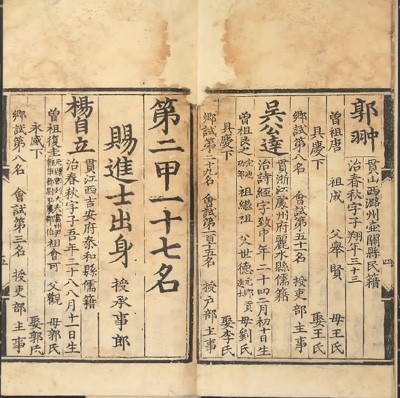 郭翀
貫山西潞州壺關縣民籍
治春秋字子翔年三十三
曾祖唐 祖成 父舉賢 母王氏
具慶下 娶王氏
鄉試第八名 會試第五十一名 授吏部主事
吳公達
貫浙江處州府麗水縣儒籍
治詩經字致中年二十四二月初十日生
曾祖良之 祖繼祖 父世德 母劉氏
具慶下 娶李氏
鄉試第二十九名 會試第一百十五名 授戶部主事
四
第二甲一十七名
賜進士出身 授承事郎
楊自立
貫江西吉安府泰和縣儒籍
治春秋字 五年二十八八月十一日生
曾祖復圭 祖會可 父觀 母郭氏
永感下 娶郭氏
鄉試第八名 會試第三名 授吏部主事
五